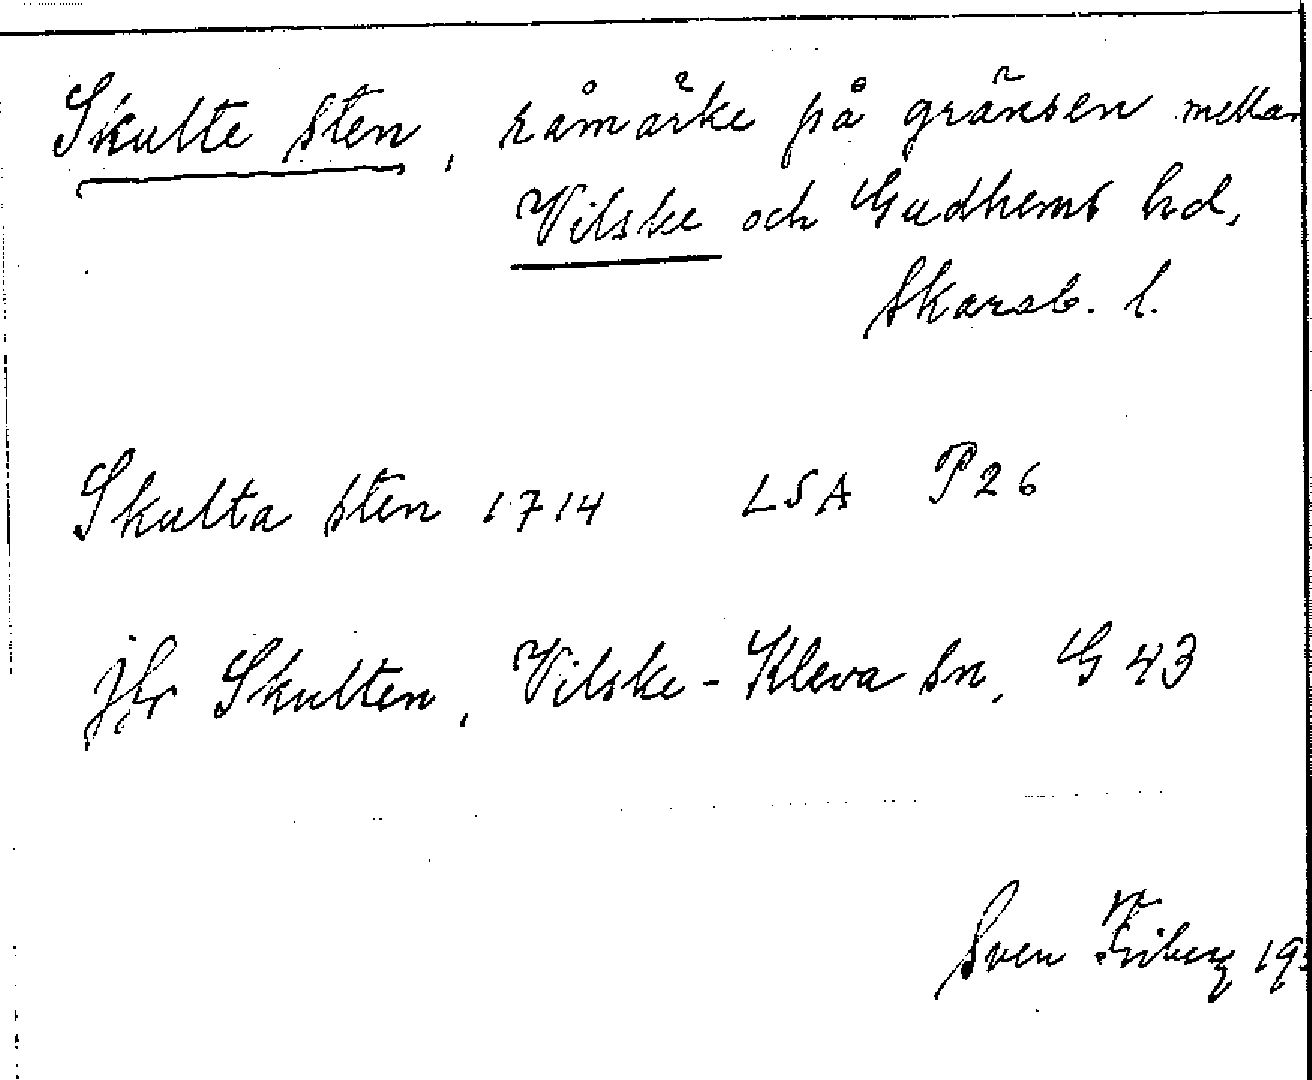 Skulte sten, råmärke på gränsen mellan
Vilske och Gudhems hd,
Skarab. l.
Skulta sten 1714 LSA P26
Jfr Skulten, Vilske-Kleva sn, G 43
Sven Friberg 19